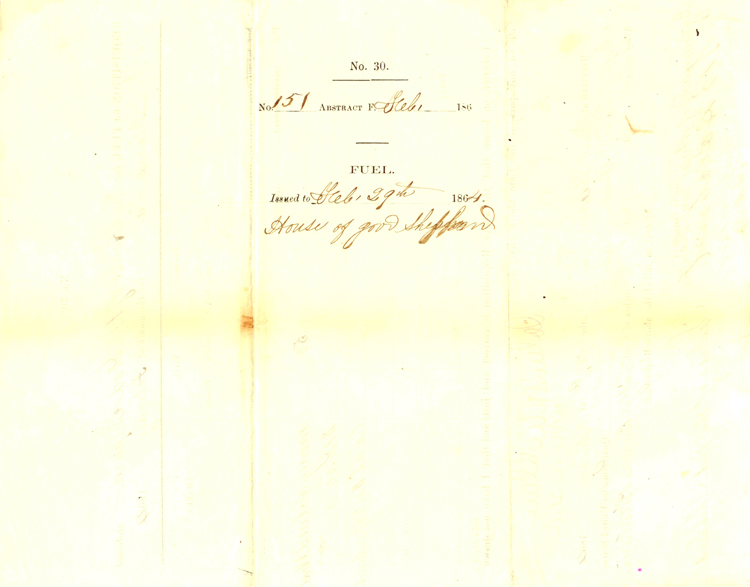 No. 30.
No. 151 ABSTRACT F. Feb. 186
FUEL.
Issued to Feb. 29th 1864.
House of good Shepherd